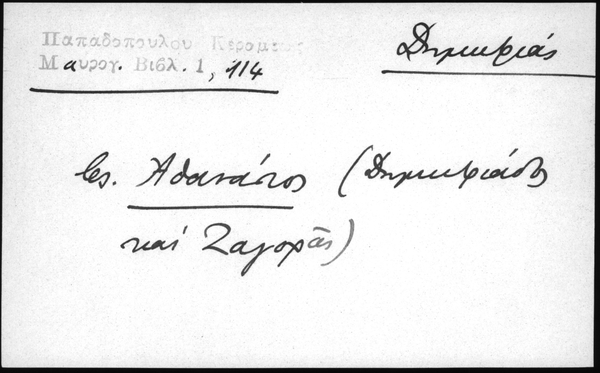 Παπαδοπούλου Κεραμεως
Μαυρογ. Βιβλ. 1, 114
Δημητριάς
Ἀθανάσιος (Δημητριάδος
καί Ζαγορᾶς)